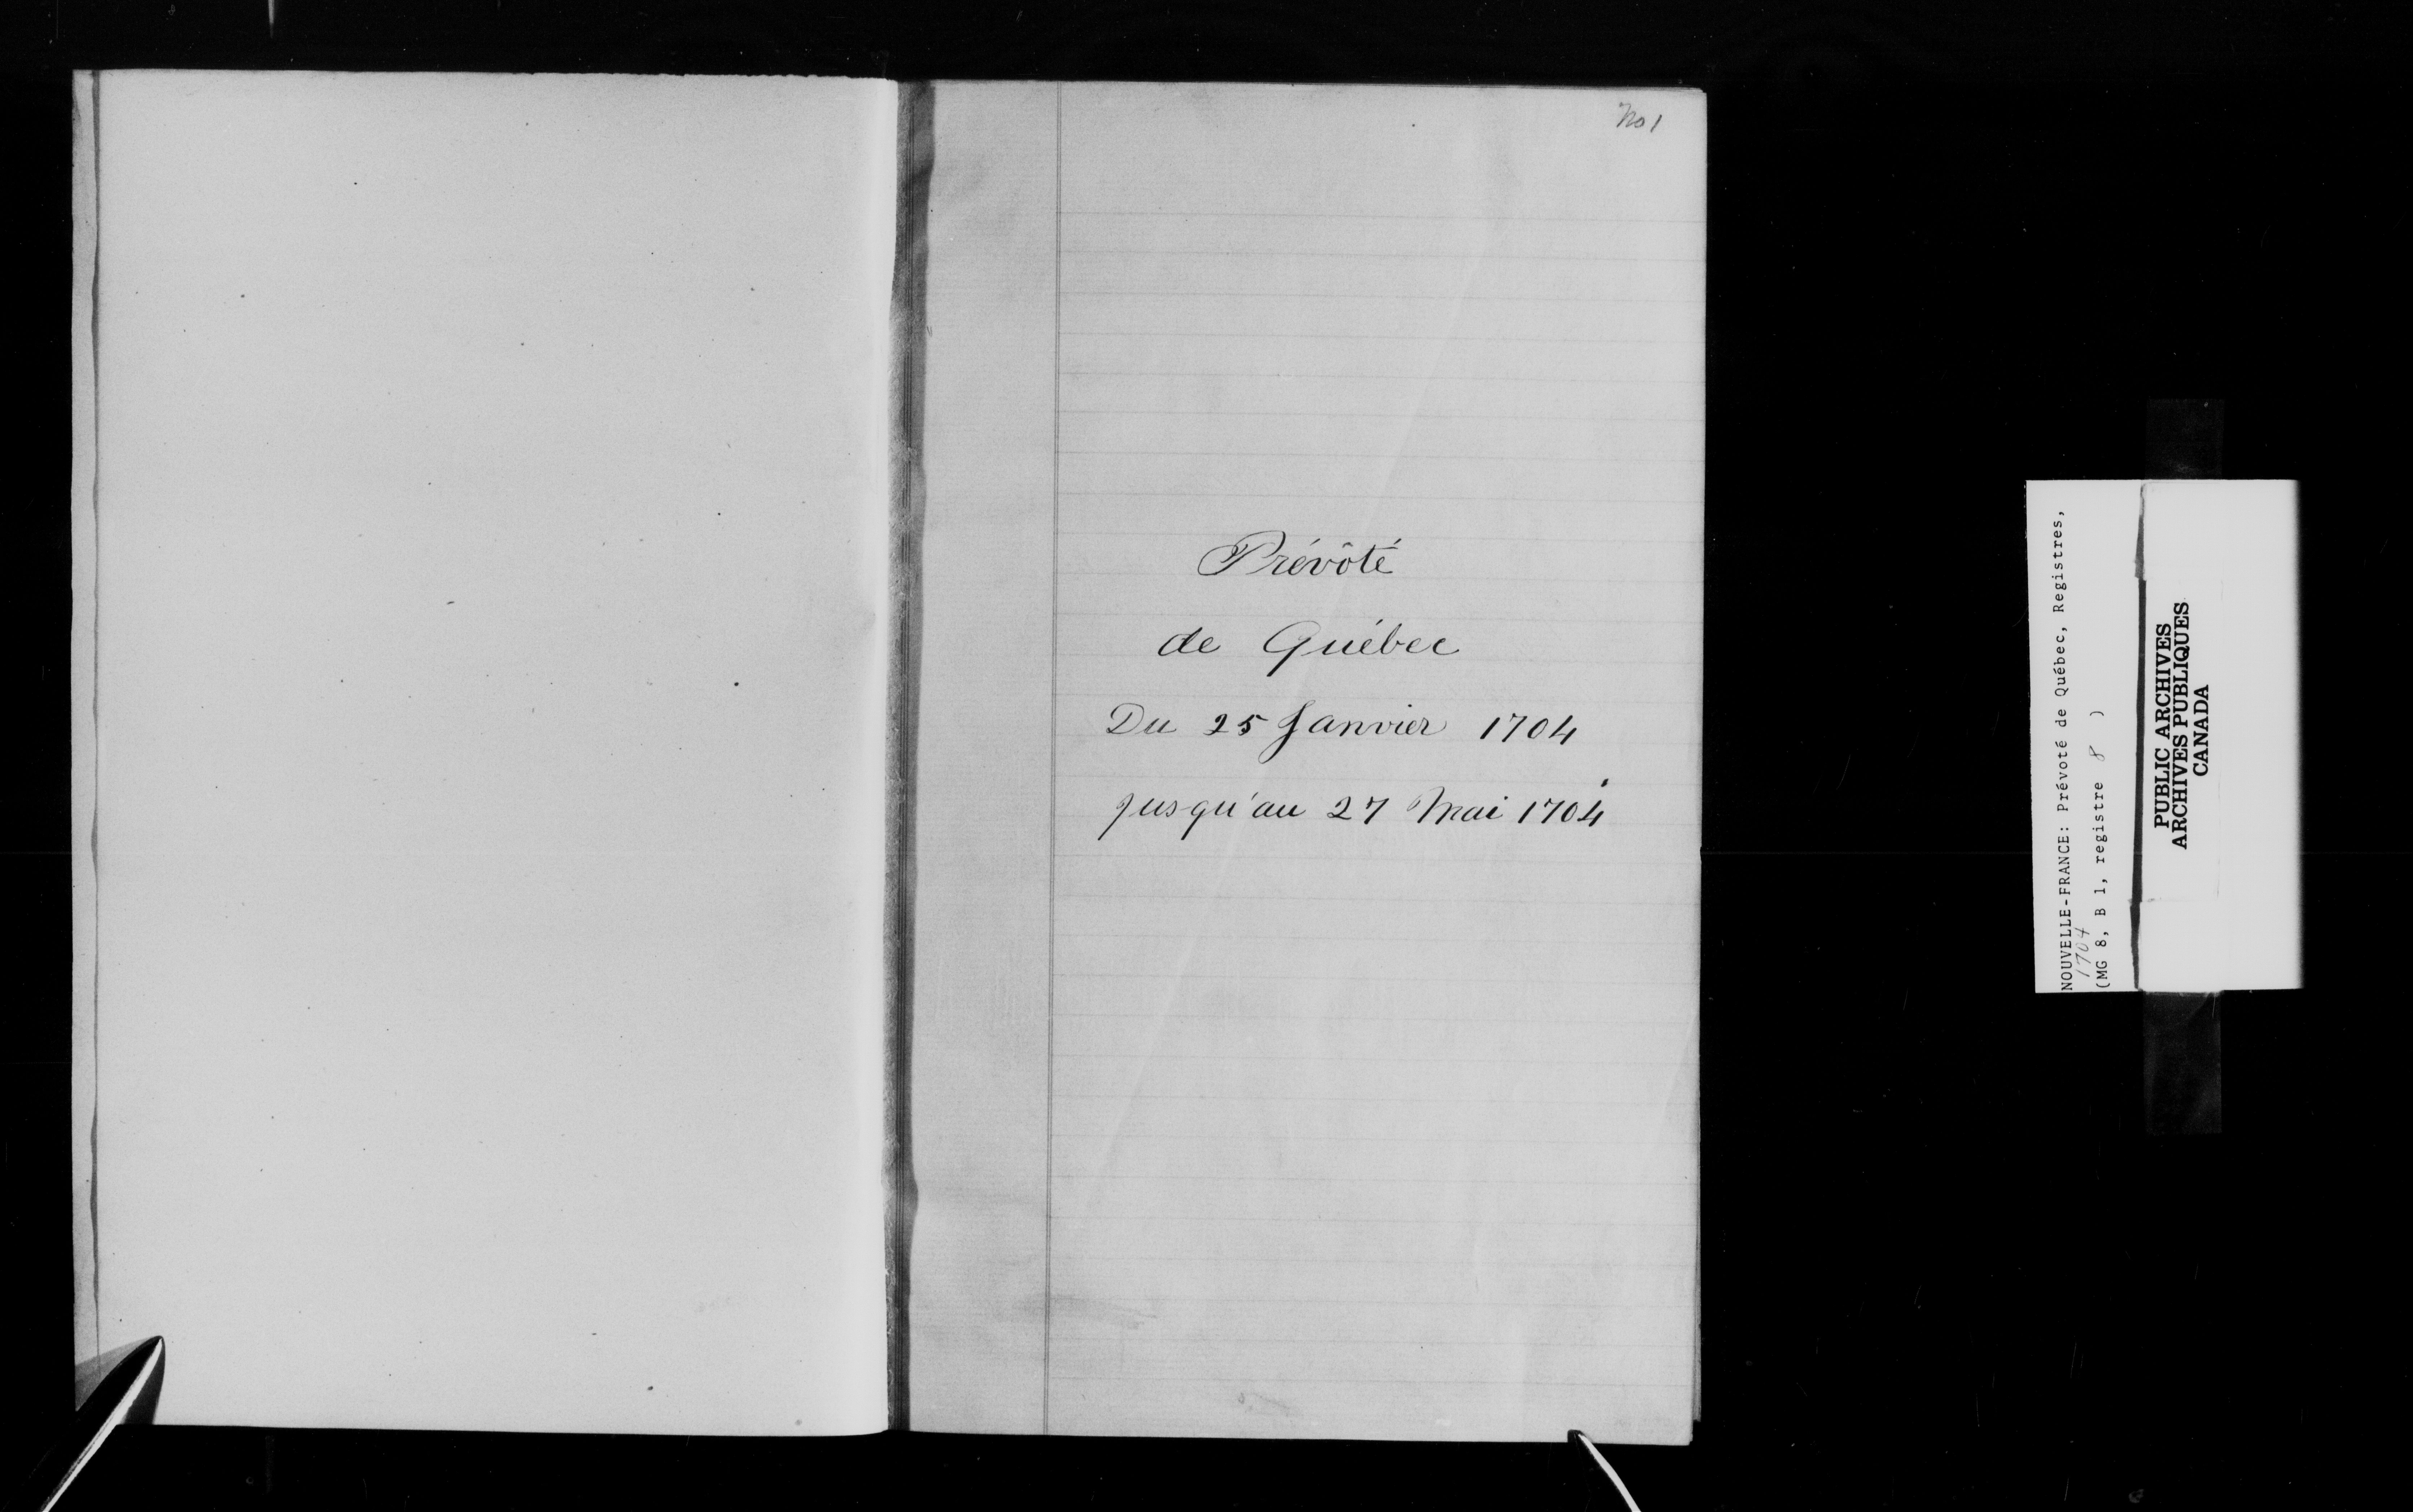 No 1
Prévôté
de Québec
Du 25 Janvier 1704
jusqu'au 27 Mai 1704
NOUVELLE-FRANCE: Prévôté de Québec, Registres,
1704
(MG 8, B 1, registre 8 )
PUBLIC ARCHIVES
ARCHIVES PUBLIQUES
CANADA